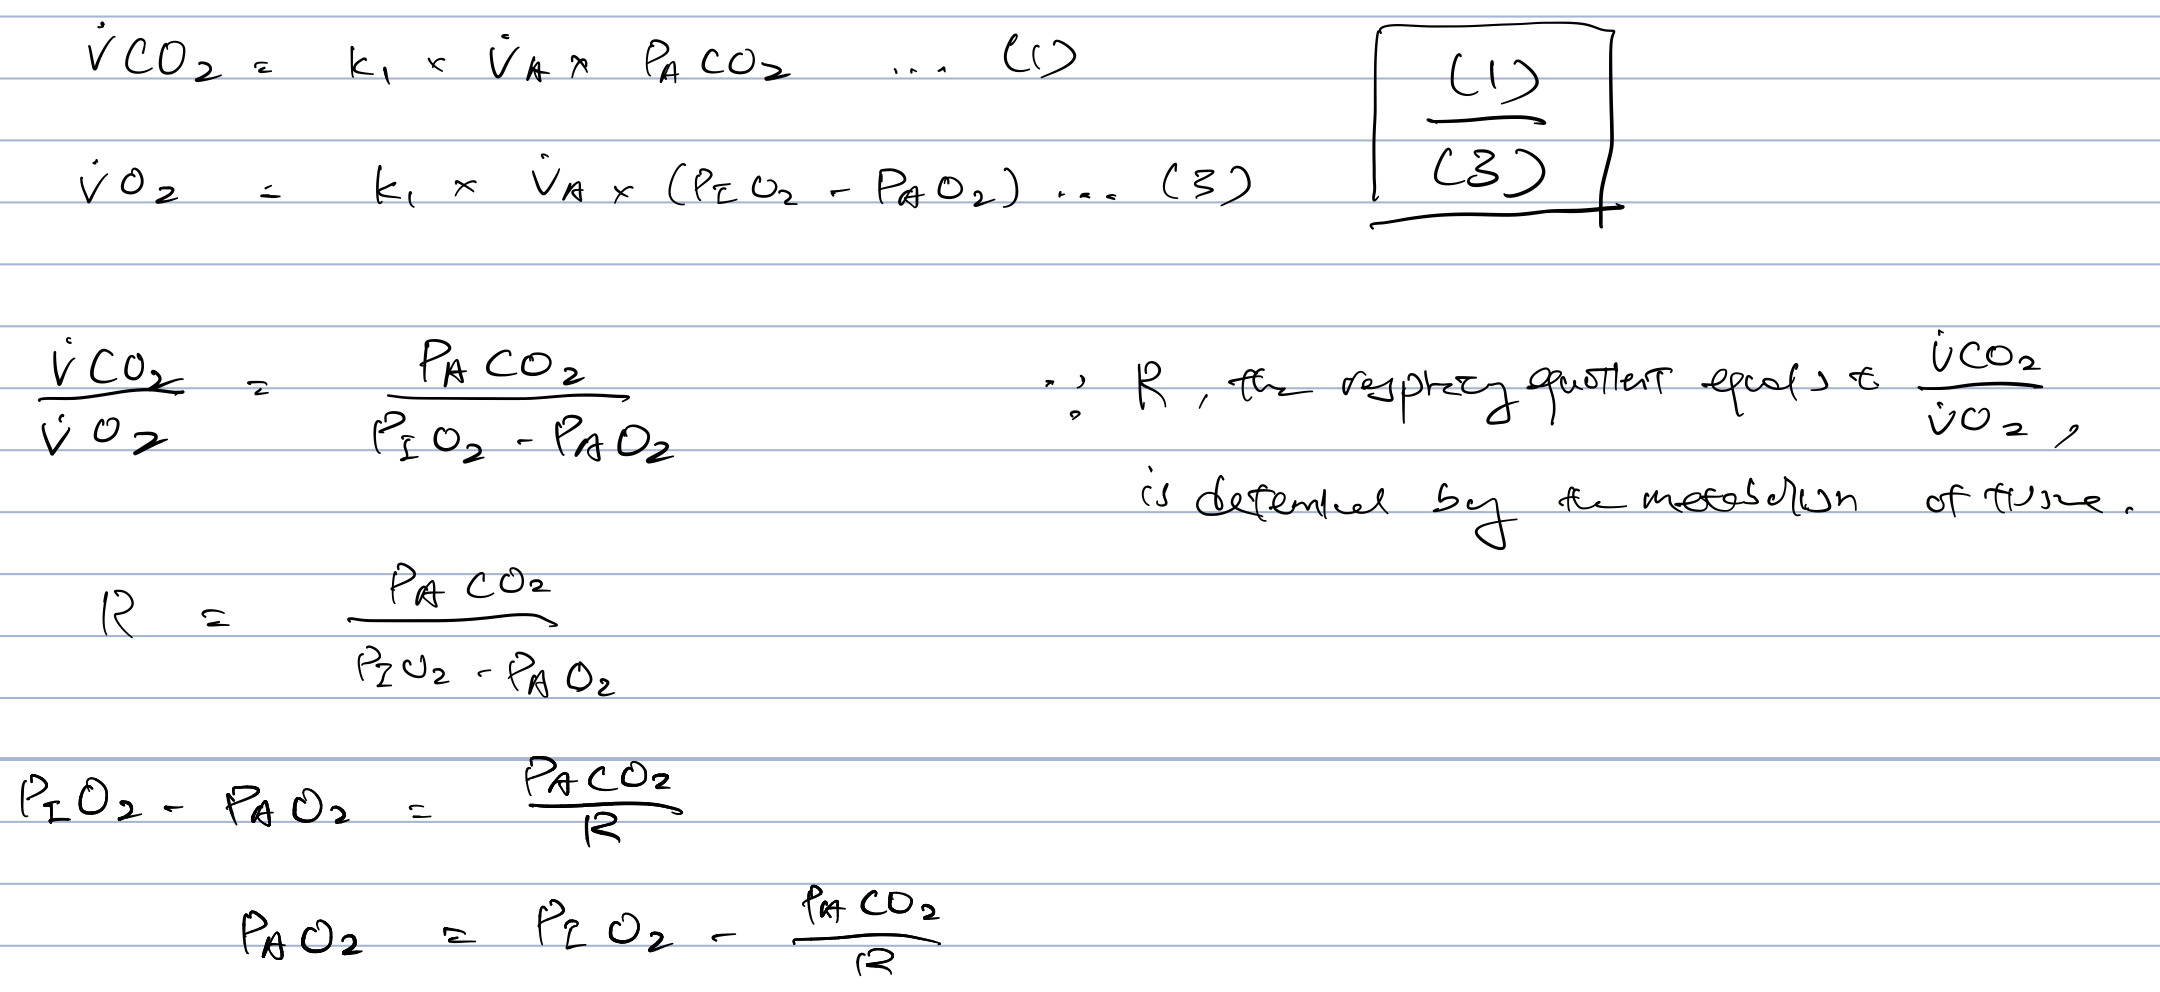 V̇CO₂ = k₁ × V̇A × PACO₂ ... (1)
(1)/(3)
V̇O₂ = k₁ × V̇A × (PIO₂ - PAO₂) ... (3)
V̇CO₂/V̇O₂ = PACO₂/(PIO₂ - PAO₂)
∵ R, the respiratory quotient equals to V̇CO₂/V̇O₂,
is determined by the metabolism of tissue.
R = PACO₂/(PIO₂ - PAO₂)
PIO₂ - PAO₂ = PACO₂/R
PAO₂ = PIO₂ - PACO₂/R